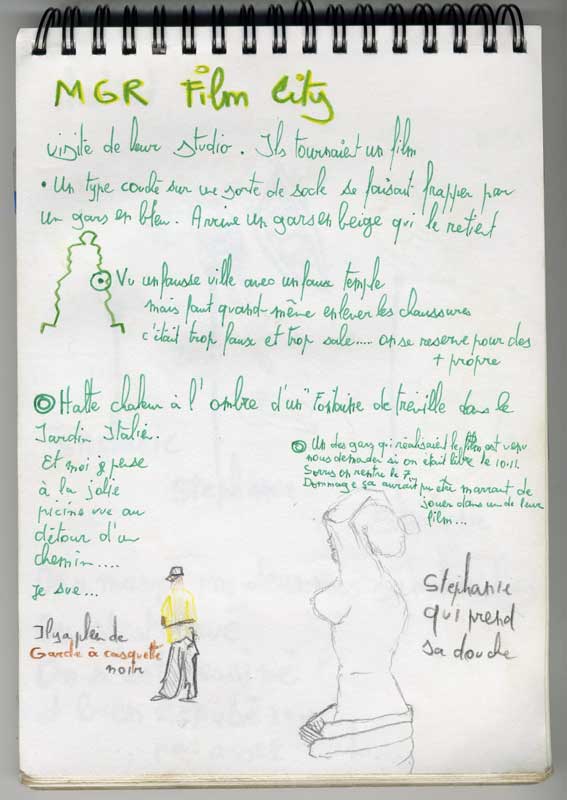 MGR Film City
visite de leur studio. Ils tournaient un film
• Un type coudé sur une sorte de sock se faisait frapper par
un gars en bleu. Arrive un gars en beige qui le retient
Vu un fausse ville avec un faux temple
mais faut quand-même enlever les chaussures
c'était trop faux et trop sale..... on se reserve pour des
+ propre
Halte chaleur à l'ombre d'un "Fontaine de treville dans le
Jardin Italie.
Et moi je pense
à la jolie
picine vue au
détour d'un
chemin....
je sue...
Un des gars qui réalisait le film est venu
nous demander si on était libre le 10.11.
Sorry on rentre le 7.
Dommage ça aurait pu etre marrant de
jouer dans un de leur
film...
Il y a plein de
Garde à casquette
noire
Stephanie
qui prend
sa douche